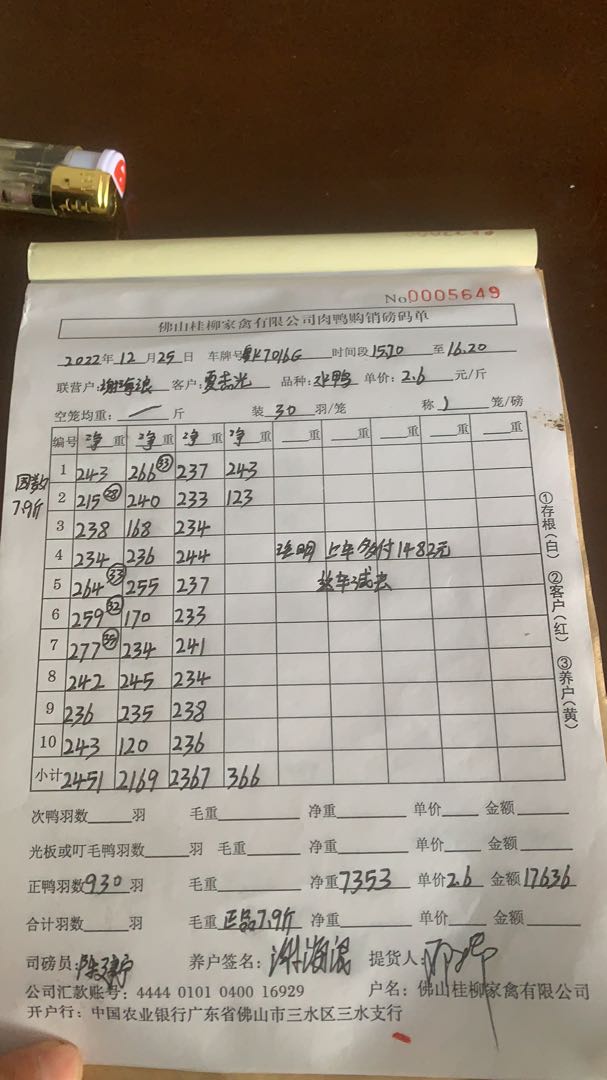 No 0005649
佛山桂柳家禽有限公司肉鸭购销磅码单
2022年12月25日 车牌号粤K7016G 时间段15.10 至16.20
联营户:谢海浪 客户:夏志光 品种:水鸭 单价:2.6 元/斤
空笼均重: — 斤 装 30 羽/笼 称 1 笼/磅
编号 净重 净重 净重 净重 重 重 重 重 重
1 243 266㉝ 237 243
国数 7.9斤
2 215㉘ 240 233 123
3 238 168 234
4 234 236 244 注明 上车多付1482元
5 264㉝ 255 237 这车减去
6 259㉜ 170 233
7 277㉟ 234 241
8 242 245 234
9 236 235 238
10 243 120 236
小计 2451 2169 2367 366
①存根(白) ②客户(红) ③养户(黄)
次鸭羽数 羽 毛重 净重 单价 金额
光板或叮毛鸭羽数 羽 毛重 净重 单价 金额
正鸭羽数930羽 毛重 净重7353 单价2.6 金额17636
合计羽数 羽 毛重 正品7.9斤 净重 单价 金额
司磅员: 养户签名:谢海浪 提货人:
公司汇款账号: 4444 0101 0400 16929 户名: 佛山桂柳家禽有限公司
开户行: 中国农业银行广东省佛山市三水区三水支行